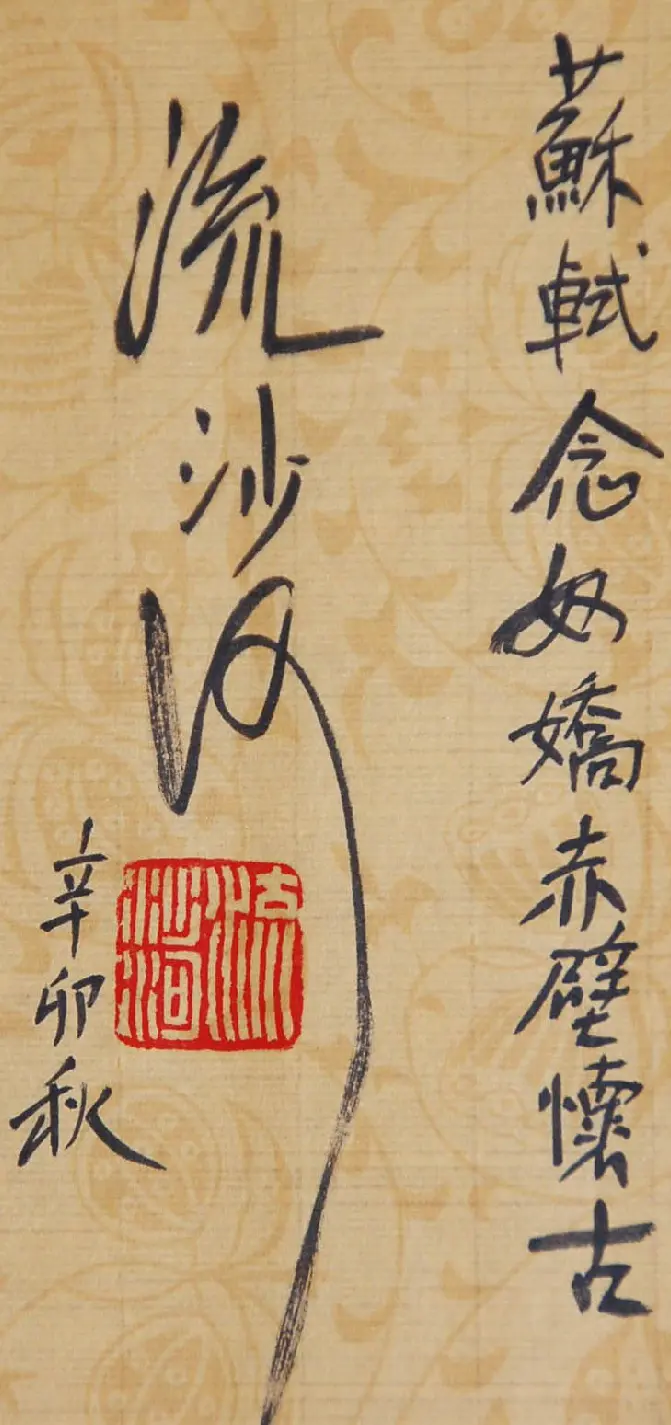 蘇軾念奴嬌赤壁懷古
流沙河
辛卯秋
流沙河